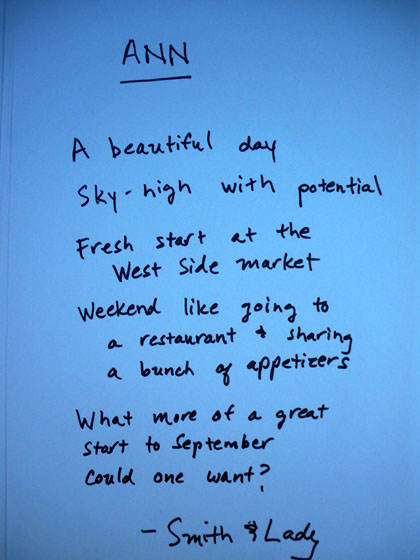 ANN
A beautiful day
Sky-high with potential
Fresh start at the
West Side market
Weekend like going to
a restaurant & sharing
a bunch of appetizers
What more of a great
start to September
could one want?
- Smith & Lady